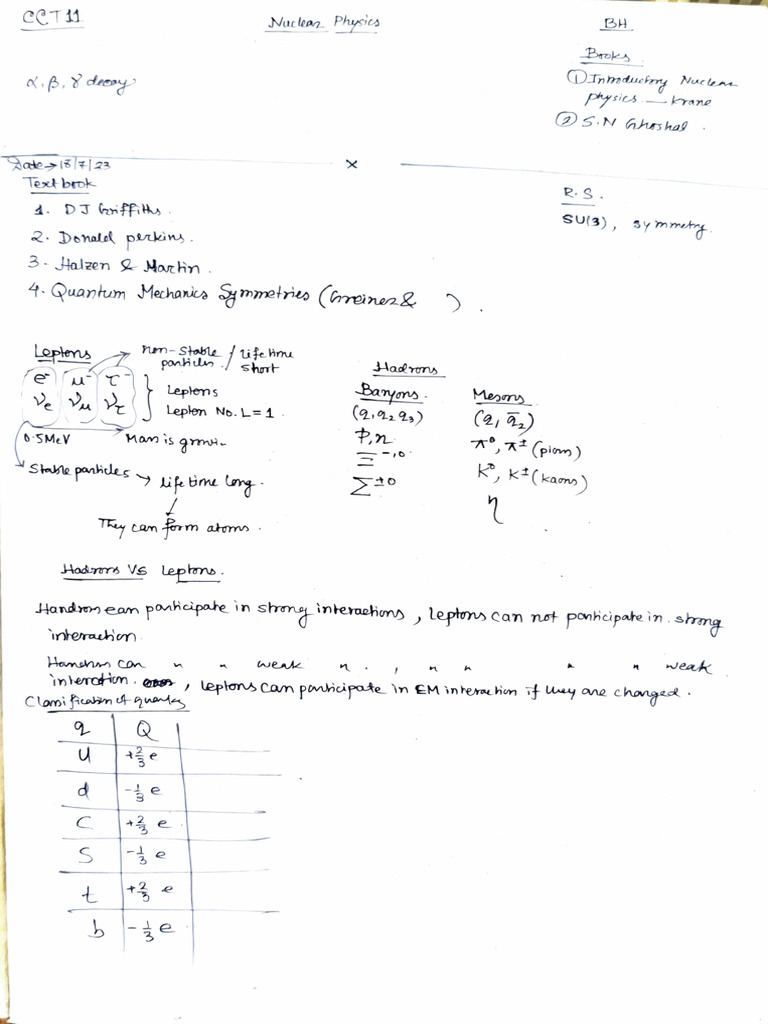 CCT 11
Nuclear Physics
BH
Books
① Introductory Nuclear
physics — Krane
② S.N Ghoshal.
α, β, γ decay
Date → 18/7/23
Textbook
1. DJ Griffiths.
2. Donald perkins.
3. Halzen & Martin.
4. Quantum Mechanics Symmetries (Greiner & ).
R.S.
SU(3), symmetry.
Leptons
non-stable particles / life time short
e⁻ μ⁻ τ⁻
νe νμ ντ
Leptons
Lepton No. L = 1.
0.5 MeV
Mass is growi-
Stable particles → life time long.
They can form atoms.
Hadrons
Baryons
(q1 q2 q3)
P, n
Ξ⁻,⁰
Σ±0
Mesons
(q1 q̄2)
π⁰, π± (pions)
K⁰, K± (kaons)
η
Hadrons Vs Leptons.
Handrom can participate in strong interactions, leptons can not participate in strong
interaction.
can " " weak ". , " " " " weak
interction. , leptons can participate in EM interaction if they are changed.
Classification of quarks
q Q
u +2/3 e
d -1/3 e
C +2/3 e
S -1/3 e
t +2/3 e
b -1/3 e